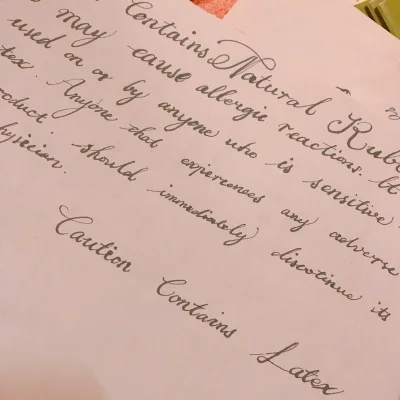 Contains Natural Rub
may cause allergic reactions. It
used on or by anyone who is sensitive
tex. Anyone that experiences any adverse
roduct should immediately discontinue its
hysician.
Caution Contains Latex